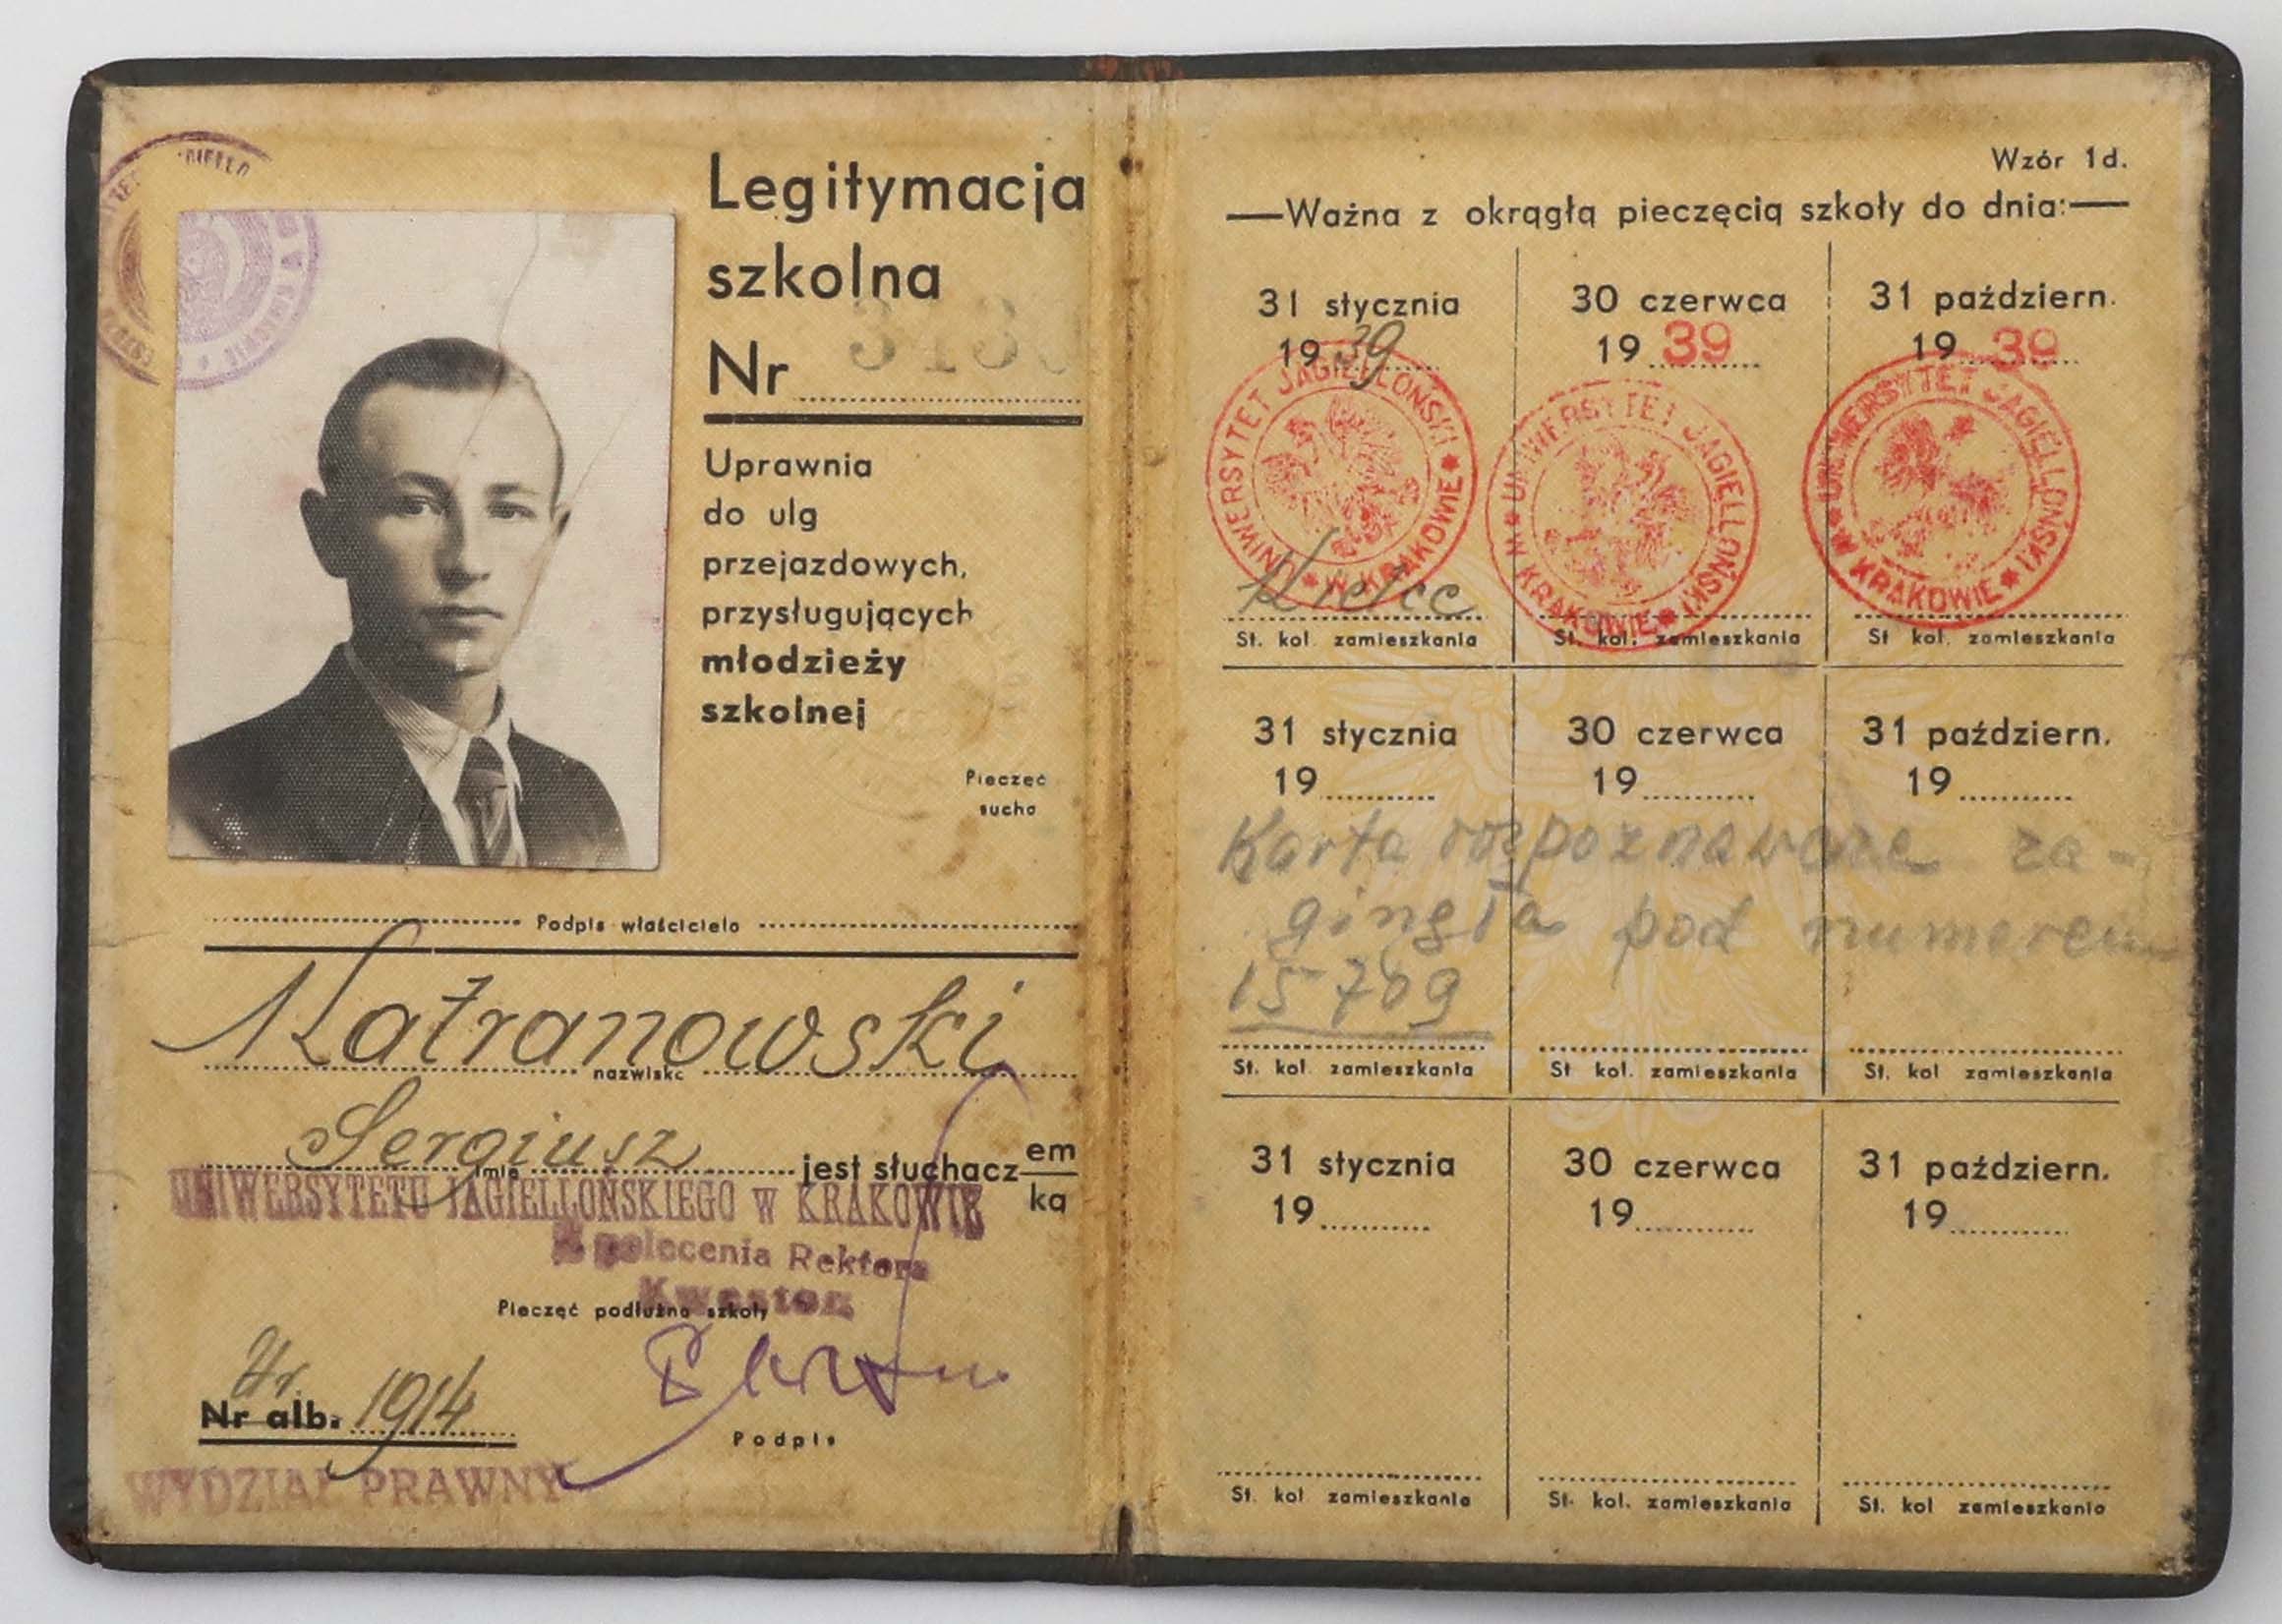 Legitymacja
szkolna
Nr
Uprawnia
do ulg
przejazdowych,
przysługujących
młodzieży
szkolnej
Pieczęć
sucha
Podpis właściciela
Katranowski
nazwisko
Sergiusz
imię jest słuchacz em
ka
UNIWERSYTETU JAGIELLOŃSKIEGO W KRAKOWIE
Z polecenia Rektora
Kwestor
Pieczęć podłużna szkoły
Nr alb. 1914
Podpis
WYDZIAŁ PRAWNY
Wzór 1d.
Ważna z okrągłą pieczęcią szkoły do dnia:
31 stycznia 30 czerwca 31 październ.
1939 1939 1939
UNIWERSYTET JAGIELLOŃSKI * W KRAKOWIE *
UNIWERSYTET JAGIELLOŃSKI * W KRAKOWIE *
UNIWERSYTET JAGIELLOŃSKI * W KRAKOWIE *
Kielce
St. kol. zamieszkania St. kol. zamieszkania St. kol. zamieszkania
31 stycznia 30 czerwca 31 październ.
19 19 19
Karta rozpoznawcza za-
ginęła pod numerem
15769
St. kol. zamieszkania St. kol. zamieszkania St. kol. zamieszkania
31 stycznia 30 czerwca 31 październ.
19 19 19
St. kol. zamieszkania St. kol. zamieszkania St. kol. zamieszkania